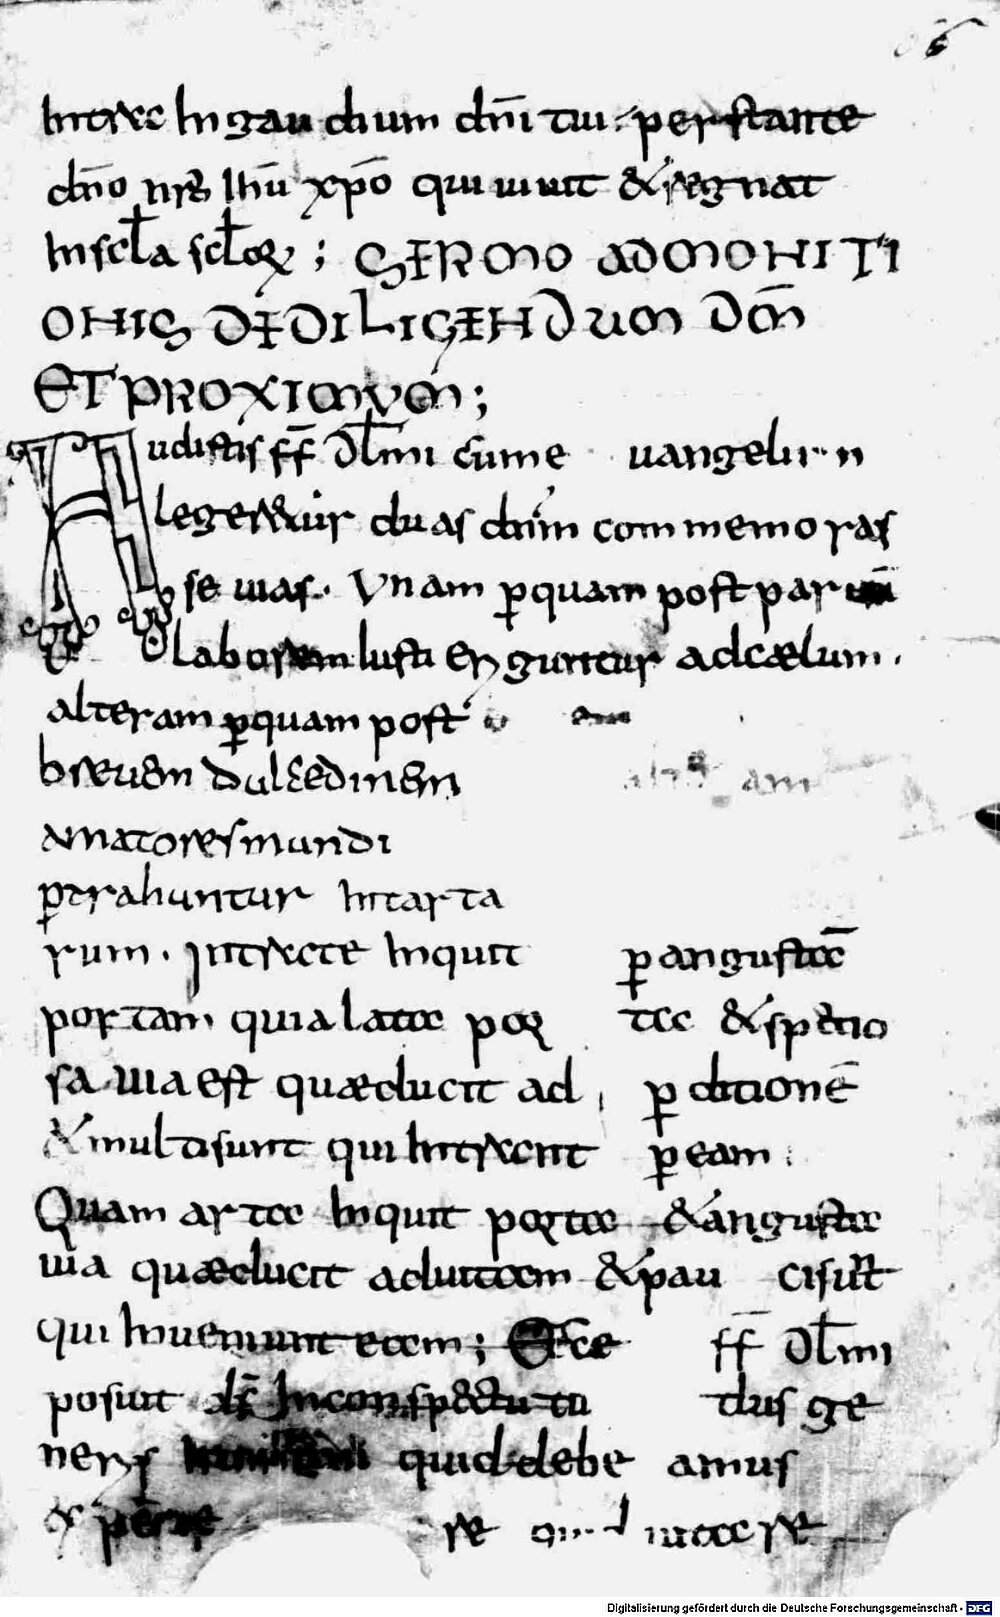 intrate In gaudium dn̄i tui. perstante
dn̄o nr̄o ihū xp̄o qui uiuit & regnat
In scl̄a scl̄oꝝ; SERMO ADMONITI
ONIS DE DILIGENDUM DM̄
ET PROXIMUM;
Audistis ff̄ dl̄mi cum euangelium
legeretur duas dnm commemoras
se uias. Vnam ꝑquam post paruū
laborem Iusti eriguntur adcælum.
alteram ꝑquam post
breuem dulcedinem
amatores mundi
ꝑtrahuntur Intarta
rum. Intrate Inquit ꝑ angustā
portam quia lata por ta & spatio
sa uia est quæducit ad ꝑditionē
& multi sunt qui Intrant ꝑ eam.
Quam arta Inquit porta & angusta
uia quæducit aduitam & pau ci sunt
qui Inueniunt eam; Ecce ff̄ dl̄mi
posuit ds̄ Inconspectu tu ius ge
neris quid debe amus
& re quid uitare